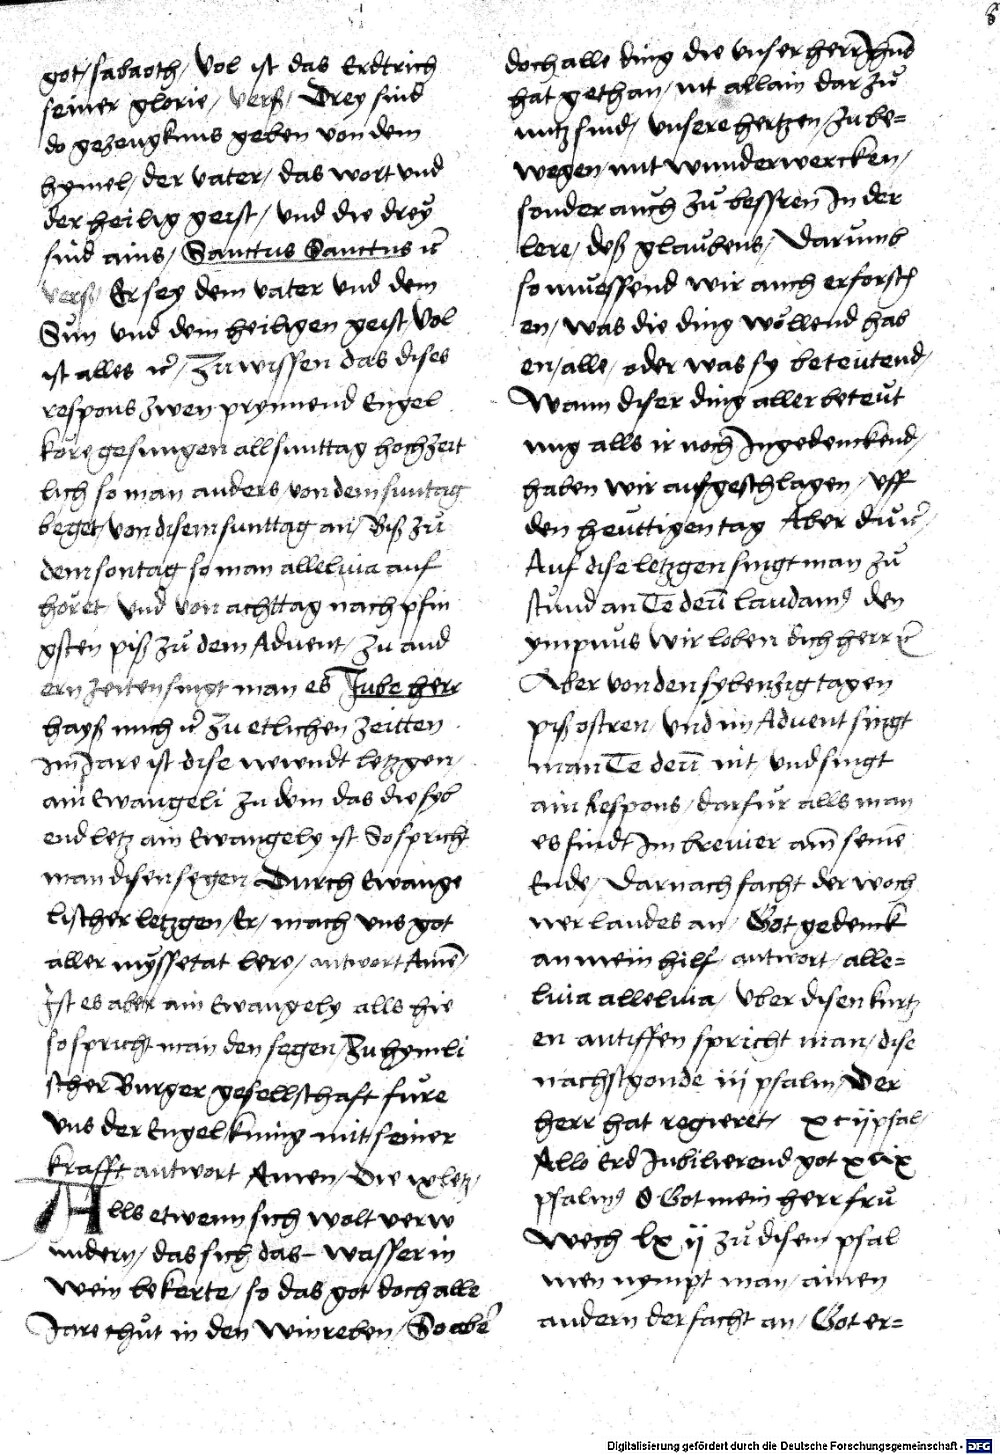 got / sabaoth / vol ist das Erdtrich
seiner glorie / vers / Drey sind
do gezeugknus geben von dem
hymel / der vater / das wort vnd
der heilig geist / vnd die drey
sind ains / Sanctus Sanctus ec̄
vers / Er sey dem vater vnd dem
Sun vnd dem heiligen geist / Vol
ist alles ec̄ / Zu wissen das dises
respons zwen prynnend Engel
köre gesungen all sunttag hochzeit
lich so man anders von dem suntag
beget / von disem sunttag an / Biß zu
dem sontag so man alleluia auf
höret vnd von achttag nach pfin
gsten piß zu dem Advent / zu and
ern zeiten singt man es Jube herr
hayß mich ec̄ zu etlichen zeitten
Im Jare ist dise newndt letzgen /
ain Ewangeli zu dem das die syb
end letz ain Ewangely ist So spricht
man disen segen / Durch Ewange
lischer letzgen / Er / mach vns got
aller myssetat lere / antwort Amē /
Ist es aber ain Ewangely alls hie
so spricht man den segen / Zu hymli
scher Burger gesellschaft füre
vns der Engel kunig mit seiner
krafft antwort Amen / Die ix letz /
Alls etwenn sich wolt verw
undern / das sich das wasser in
wein bekerte / so das got doch alle
Jare thut in den Winreben / So aber
doch alle ding die vnser herr Jhūs
hat gethan / nit allain dar zu
nutz sind / vnsere hertzen / zu be=
wegen / mit wunderwercken /
sonder auch zu bessren In der
lere / deß glaubens / Darumb
so muessend wir auch erforsch
en / was die ding wöllend hab
en / alle / oder was sy beteutend /
Wann diser ding aller beteut
ung alls ir noch Ingedenckend /
haben wir aufgeschlagen / vff
den heuttigen tag Aber du ec̄ /
Auf dise letzgen singt man zu
stund an Te deū laudamꝰ den
ympnus Wir loben dich herr ec̄
Aber von den sybenzig tagen
piß ostren / vnd im Advent singt
man Te deū nit / vnd singt
ain Respons / darfur alls man
es findt Im brevier am seinē
Ende / Darnach facht der woch
ner laudes an / Got gedenck
an mein hilf / antwort / alle=
luia alleluia / Vber disen kurtz
en antiffen spricht man / dise
nachstgonde iij psalm / Der
herr hat regieret / xcij psal /
Alle Erd Jubilierend got xcix
psalmꝰ O Got mein herr fru
wech lxij zu disem psal
men nympt man / ainen
andern der facht an / Got er=
Digitalisierung gefördert durch die Deutsche Forschungsgemeinschaft - DFG